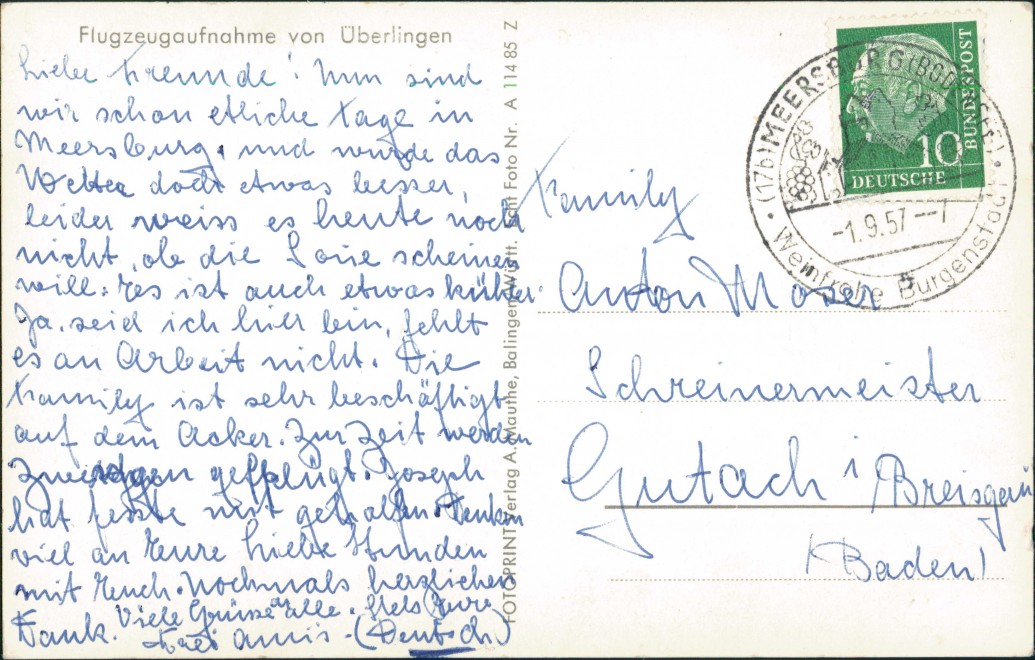 Flugzeugaufnahme von Überlingen
Liebe Freunde! Nun sind
wir schon etliche Tage in
Meersburg, und wurde das
Wetter doch etwas besser,
leider weiss es heute noch
nicht, ob die Sonne scheinen
will: es ist auch etwas kühler.
Ja, seid ich hier bin, fehlt
es an Arbeit nicht. Die
Family ist sehr beschäftigt
auf dem Acker. Zur Zeit werden
Zwetschgen gepflügt. Joseph
hat feste mit geholfen. Denken
viel an Eure liebe Stunden
mit Euch. Nochmals herzlichen
Dank. Viele Grüsse an alle. Stets Eure
amis - (Deutsch)
FOTOPRINT Verlag A. Mauthe, Balingen Württ. Foto Nr. A 11485 Z
(17b) MEERSBURG (BODENSEE)
-1.9.57--7
Weinfrohe Burgenstadt
10
DEUTSCHE
BUNDESPOST
Family
Anton Moser
Schreinermeister
Gutach i Breisgau
(Baden)